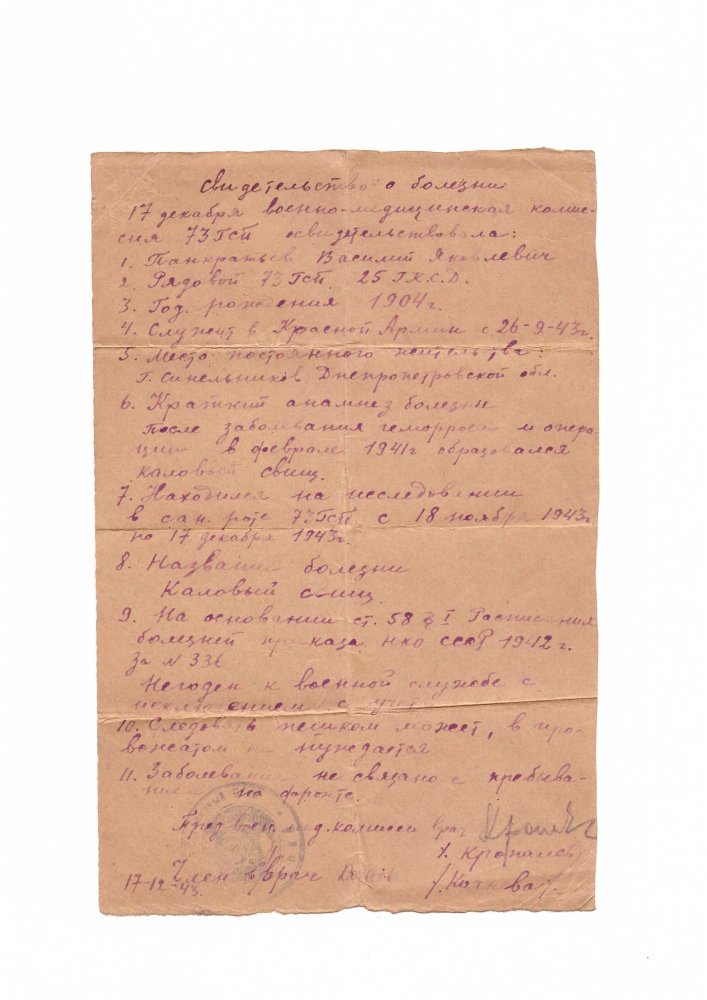 Свидетельство о болезни
17 декабря военно-медицинская комис-
сия 73 ГСП освидетельствовала:
1. Панкратьев Василий Яковлевич
2. Рядовой 73 ГСП 25 Г.К.С.Д.
3. Год рождения 1904 г.
4. Служит в Красной Армии с 26-9-43 г.
5. Место постоянного жительства:
г. Синельников Днепропетровской обл.
6. Краткий анамнез болезни
После заболевания геморроем и опера-
ции в феврале 1941 г образовался
каловый свищ.
7. Находился на исследовании
в сан. роте 73 ГСП с 18 ноября 1943 г
по 17 декабря 1943 г.
8. Название болезни
Каловый свищ
9. На основании ст. 58 I Расписания
болезней приказа НКО СССР 1942 г.
За N 336
Негоден к военной службе с
исключением с учета
10. Следовать пешком может, в про-
вожатом не нуждается.
11. Заболевание не связано с пребыва-
нием на фронте.
Пред. воен. мед. комиссии врач
Член врач
17-12-43 г.